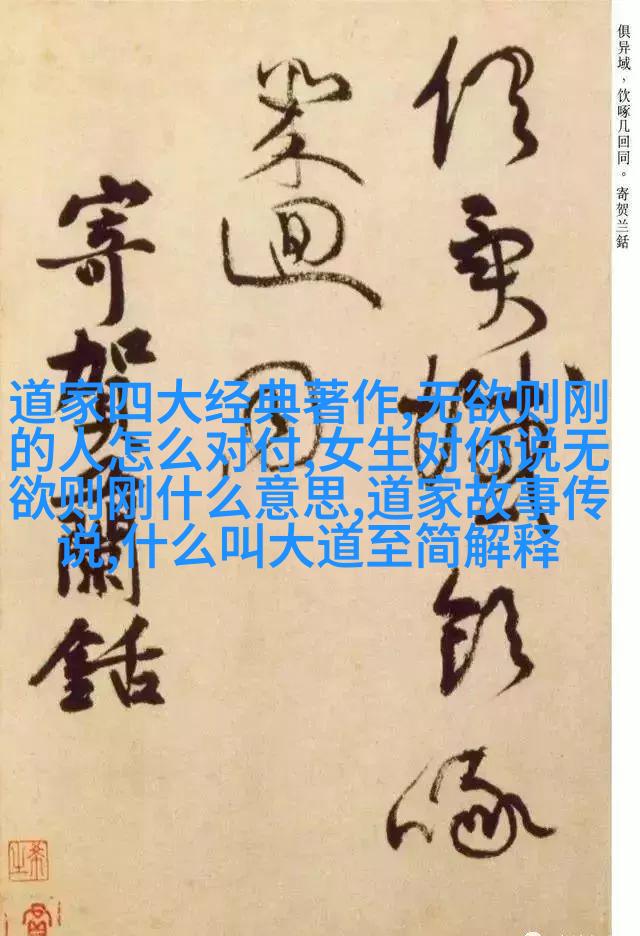 俱异域，饮啄几回同。寄贺兰銛
俱異域飲啄
幾迴同
寄賀蘭銛
道家四大经典著作,无欲则刚
的人怎么对付,女生对你说无
欲则刚什么意思,道家故事传
说,什么叫大道至简解释